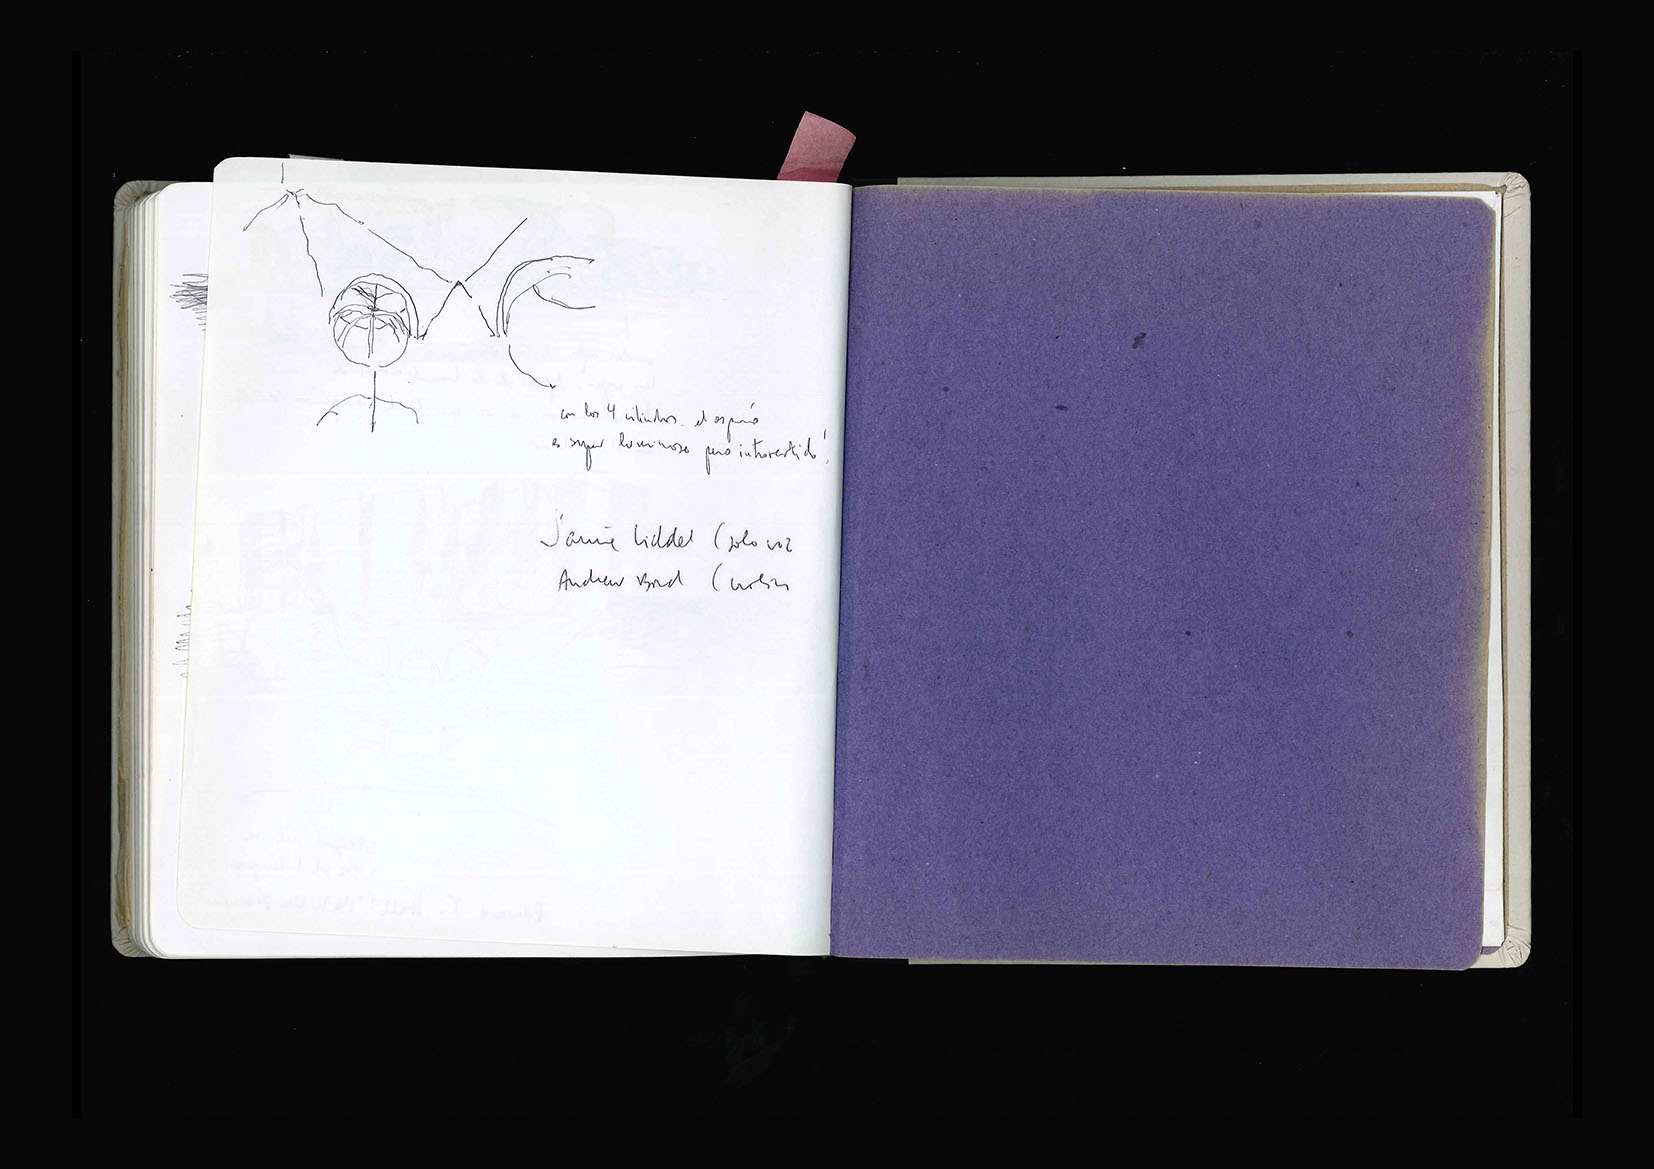 con los 4 cilindros. el espacio
es super luminoso pero introvertido!
Jamie Liddel (solo voz
Andrew Bird (violin